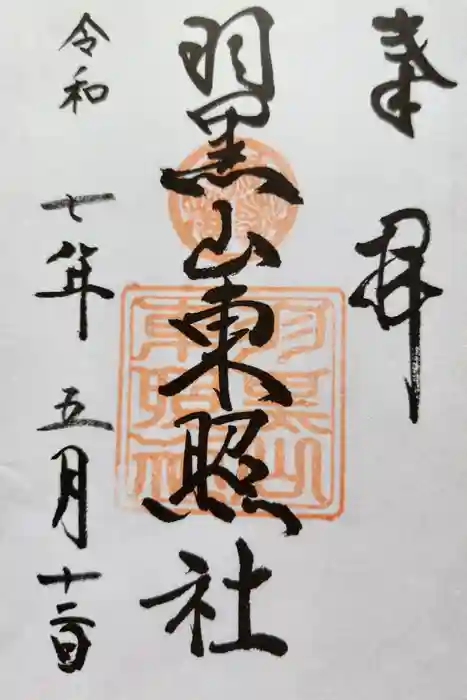 奉拝
羽黒山東照社
令和七年五月十二日
羽黒山
東照社